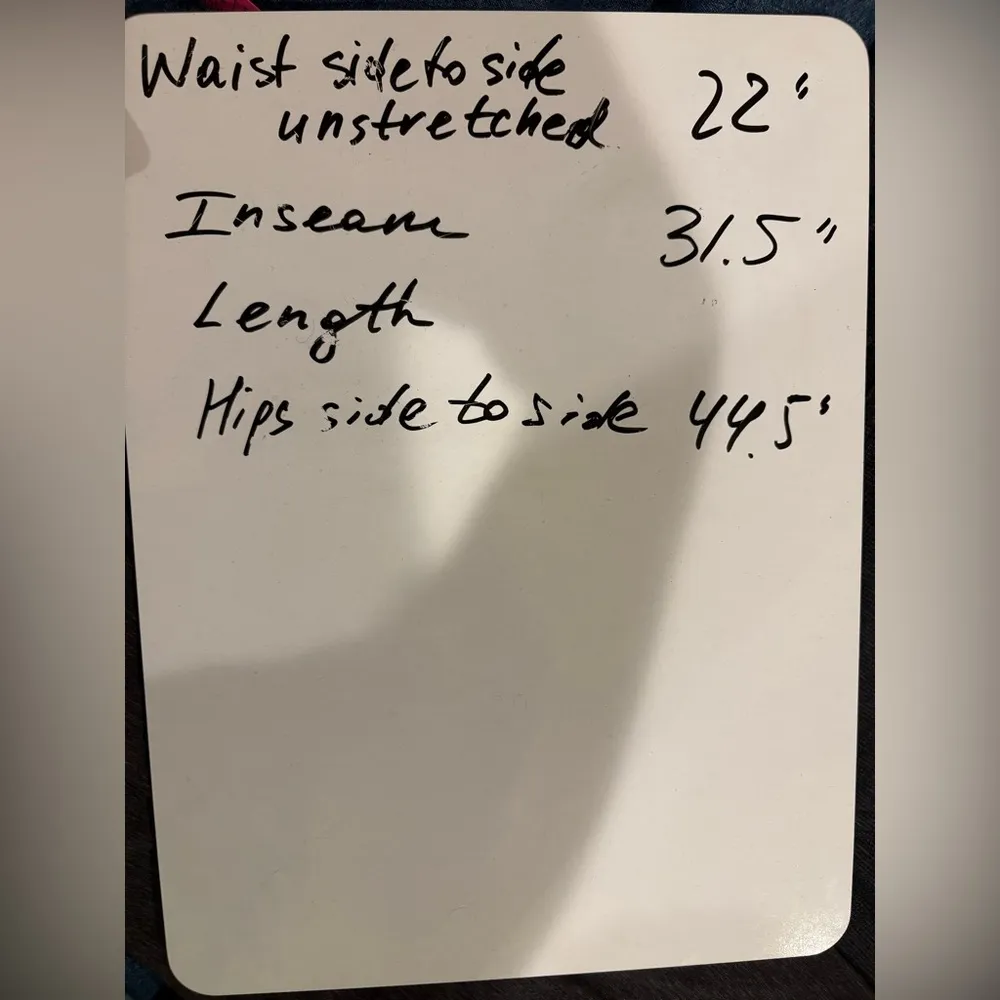 Waist side to side
unstretched 22"
Inseam 31.5"
Length
Hips side to side 44.5"